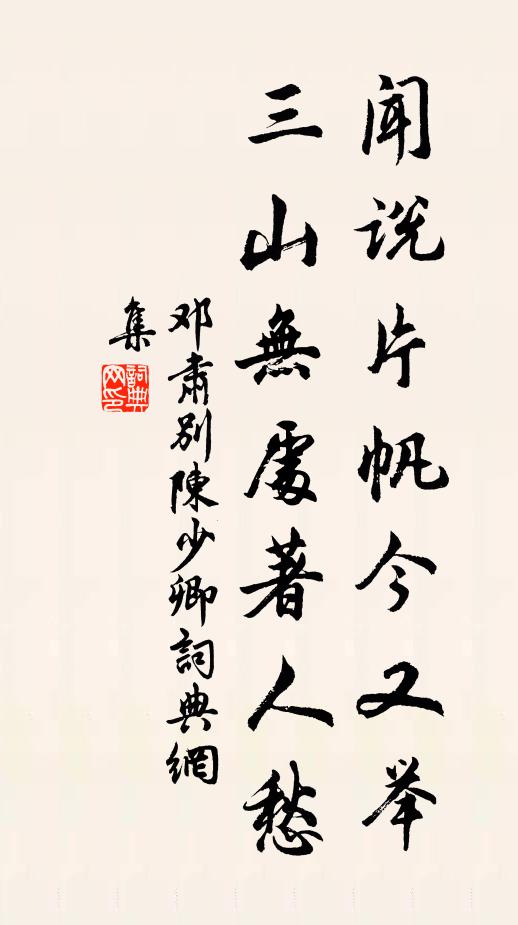 闻说片帆今又举
三山無處著人愁
邓肅别陳少卿詞典網
集
詞典
网印